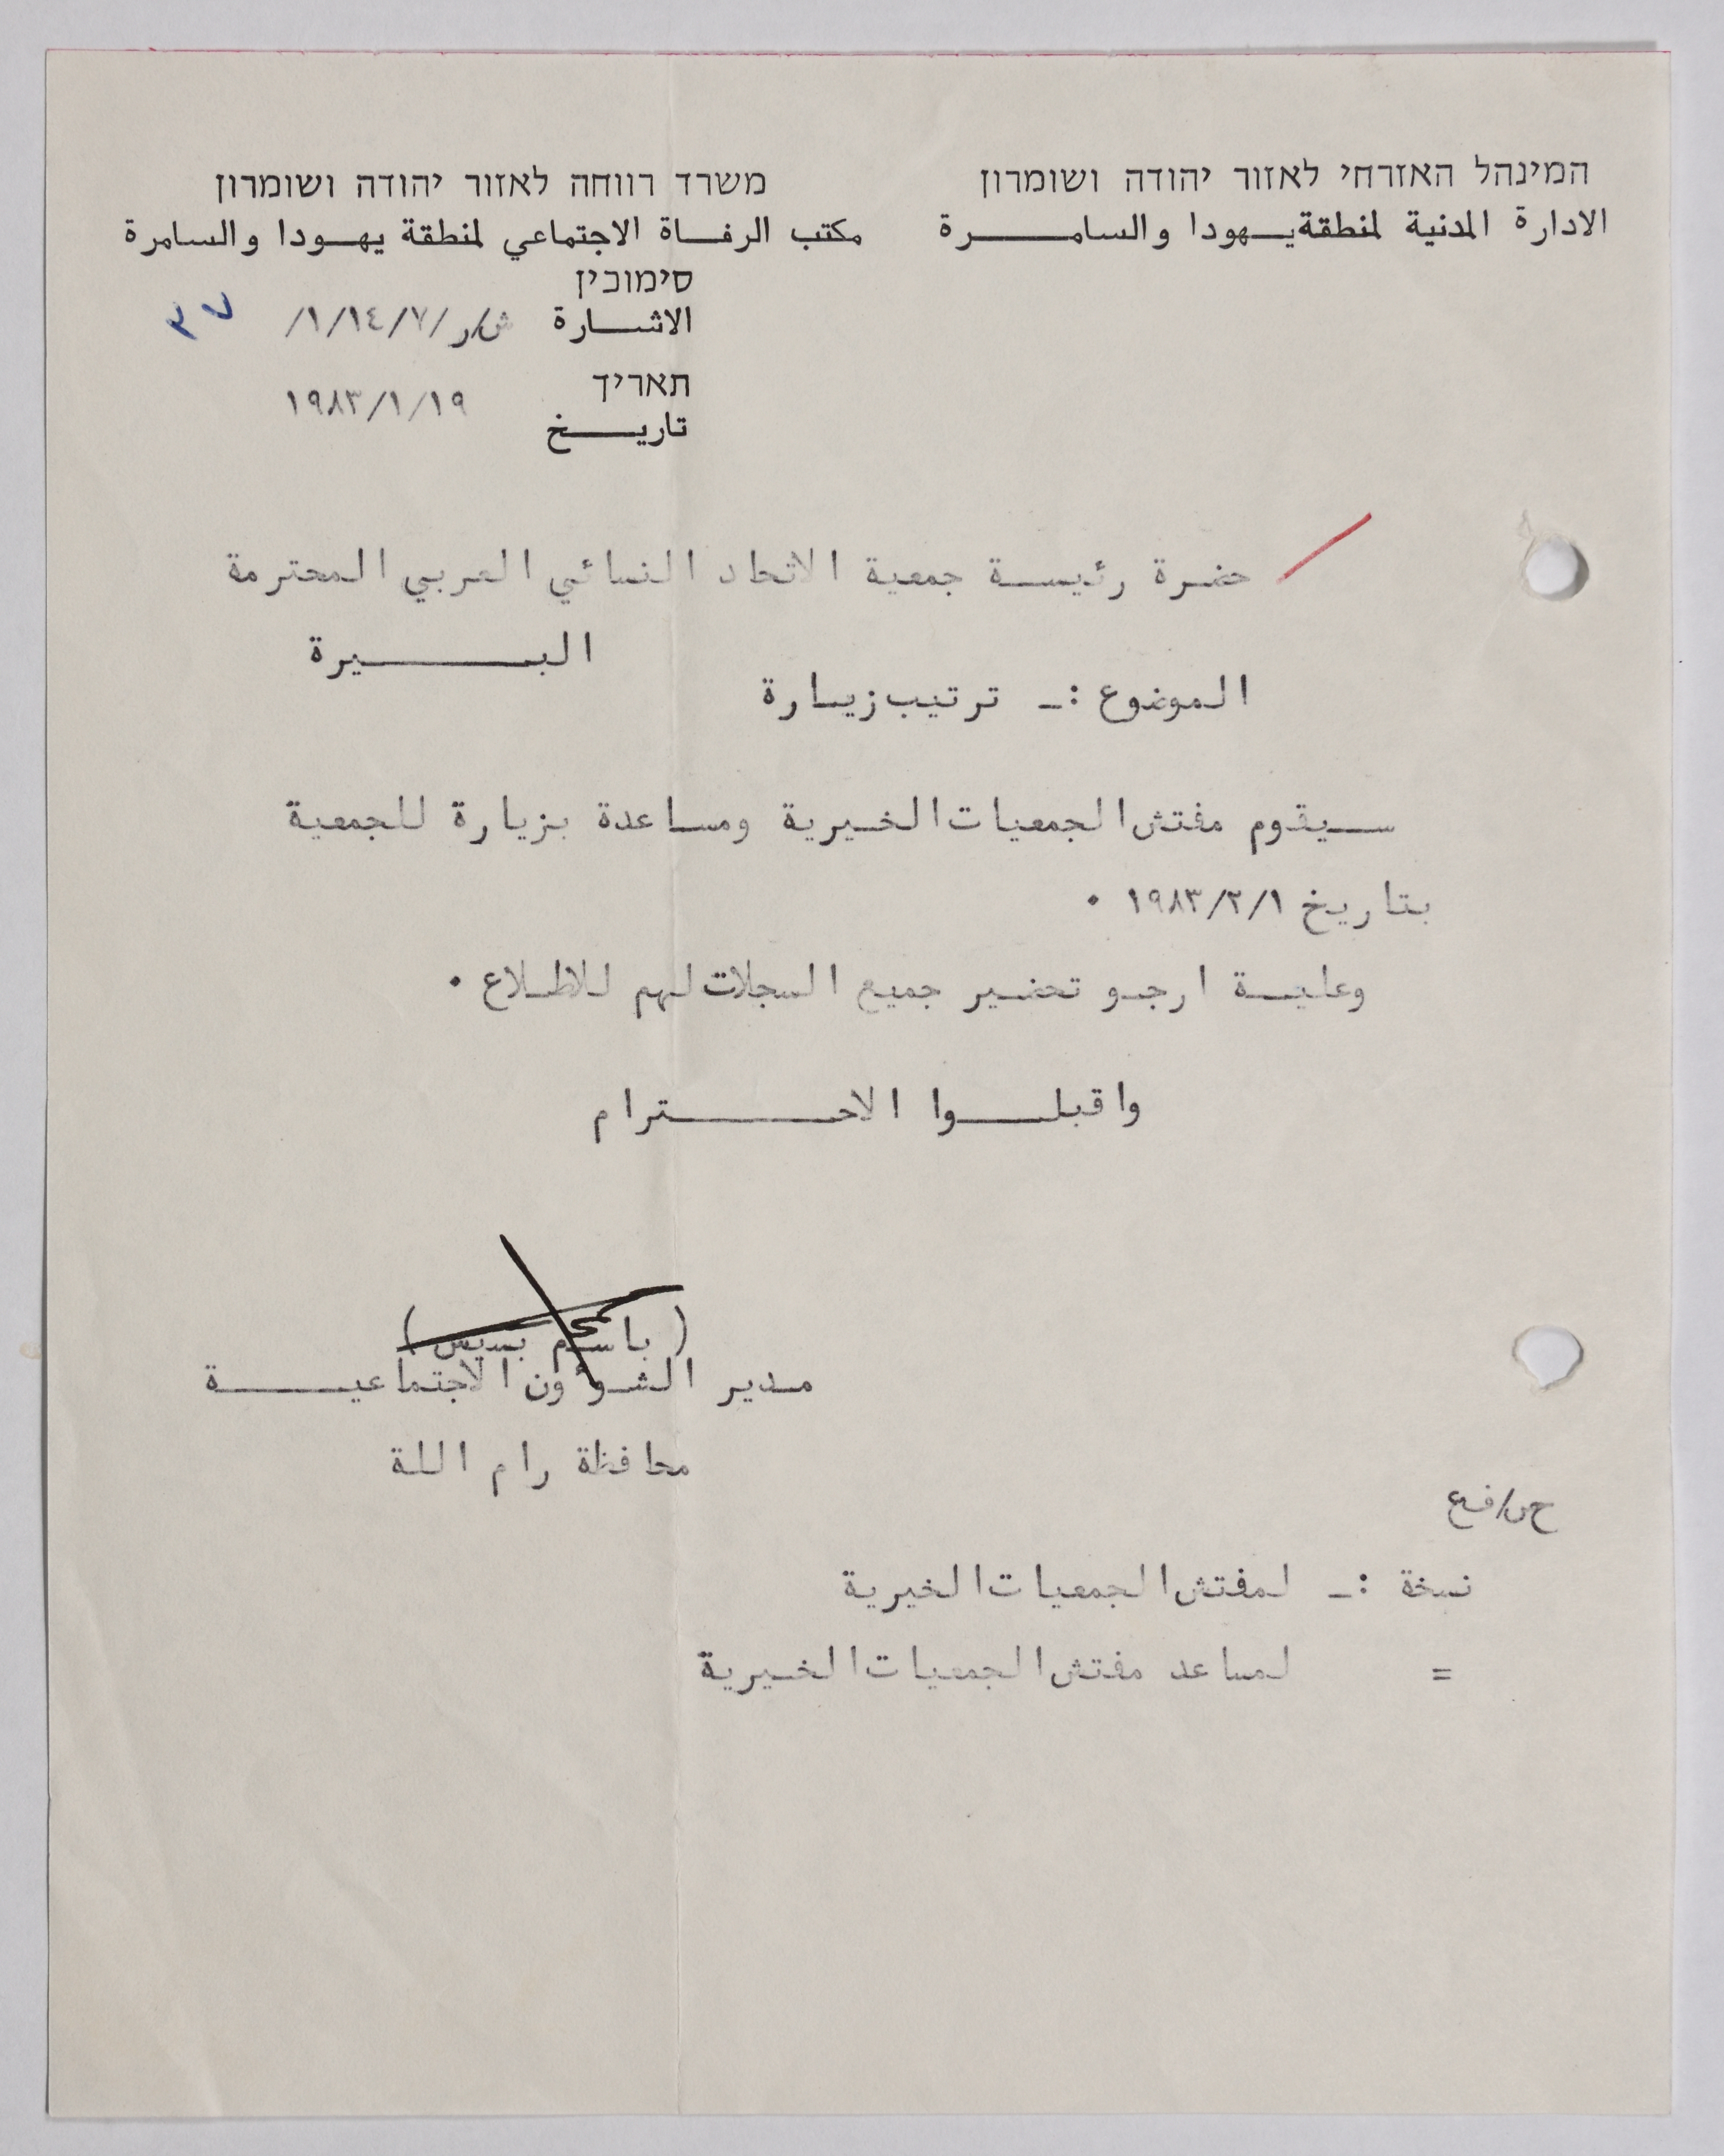 המינהל האזרחי לאזור יהודה ושומרון
الادارة المدنية لمنطقة يهودا والسامرة
משרד רווחה לאזור יהודה ושומרון
مكتب الرفاة الاجتماعي لمنطقة يهودا والسامرة
סימוכין
الاشارة ش/ر/١/١٤/٧/
תאריך
١٩٨٣/١/١٩
تاريخ
حضرة رئيسة جمعية الاتحاد النسائي العربي المحترمة
البيرة
الموضوع :- ترتيب زيارة
سيقوم مفتش الجمعيات الخيرية ومساعدة بزيارة للجمعية
بتاريخ ١٩٨٣/٢/١ ٠
وعلية ارجو تحضير جميع السجلات لهم للاطلاع ٠
واقبلوا الاحترام
( باسم بديس )
مدير الشوءون الاجتماعية
محافظة رام اللة
نسخة :- لمفتش الجمعيات الخيرية
= لمساعد مفتش الجمعيات الخيرية